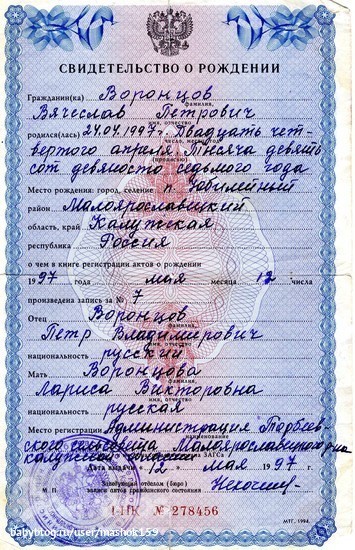 СВИДЕТЕЛЬСТВО О РОЖДЕНИИ
Гражданин(ка) Воронцов
фамилия,
Вячеслав Петрович
имя, отчество
родился(лась) 24.04.1997г. Двадцать чет-
число, месяц, год
вертого апреля Тысяча девять
(прописью)
сот девяносто седьмого года
Место рождения: город, селение п. Юбилейный
район Малоярославецкий
область, край Калужская
республика Россия
о чем в книге регистрации актов о рождении
1997 года мая месяца 12 числа
произведена запись за № 7
Отец Воронцов
фамилия,
Петр Владимирович
имя, отчество
национальность русский
Мать Воронцова
фамилия,
Лариса Викторовна
имя, отчество
национальность русская
Место регистрации Администрация
наименование
Малоярославецкого р-на
Калужской области
органа ЗАГСа
Дата выдачи «12» мая 1997г.
М. П.
Заведующий отделом (бюро)
записи актов гражданского состояния
I-ПК № 278456
МТГ. 1994.
babyblog.ru/user/mashok159